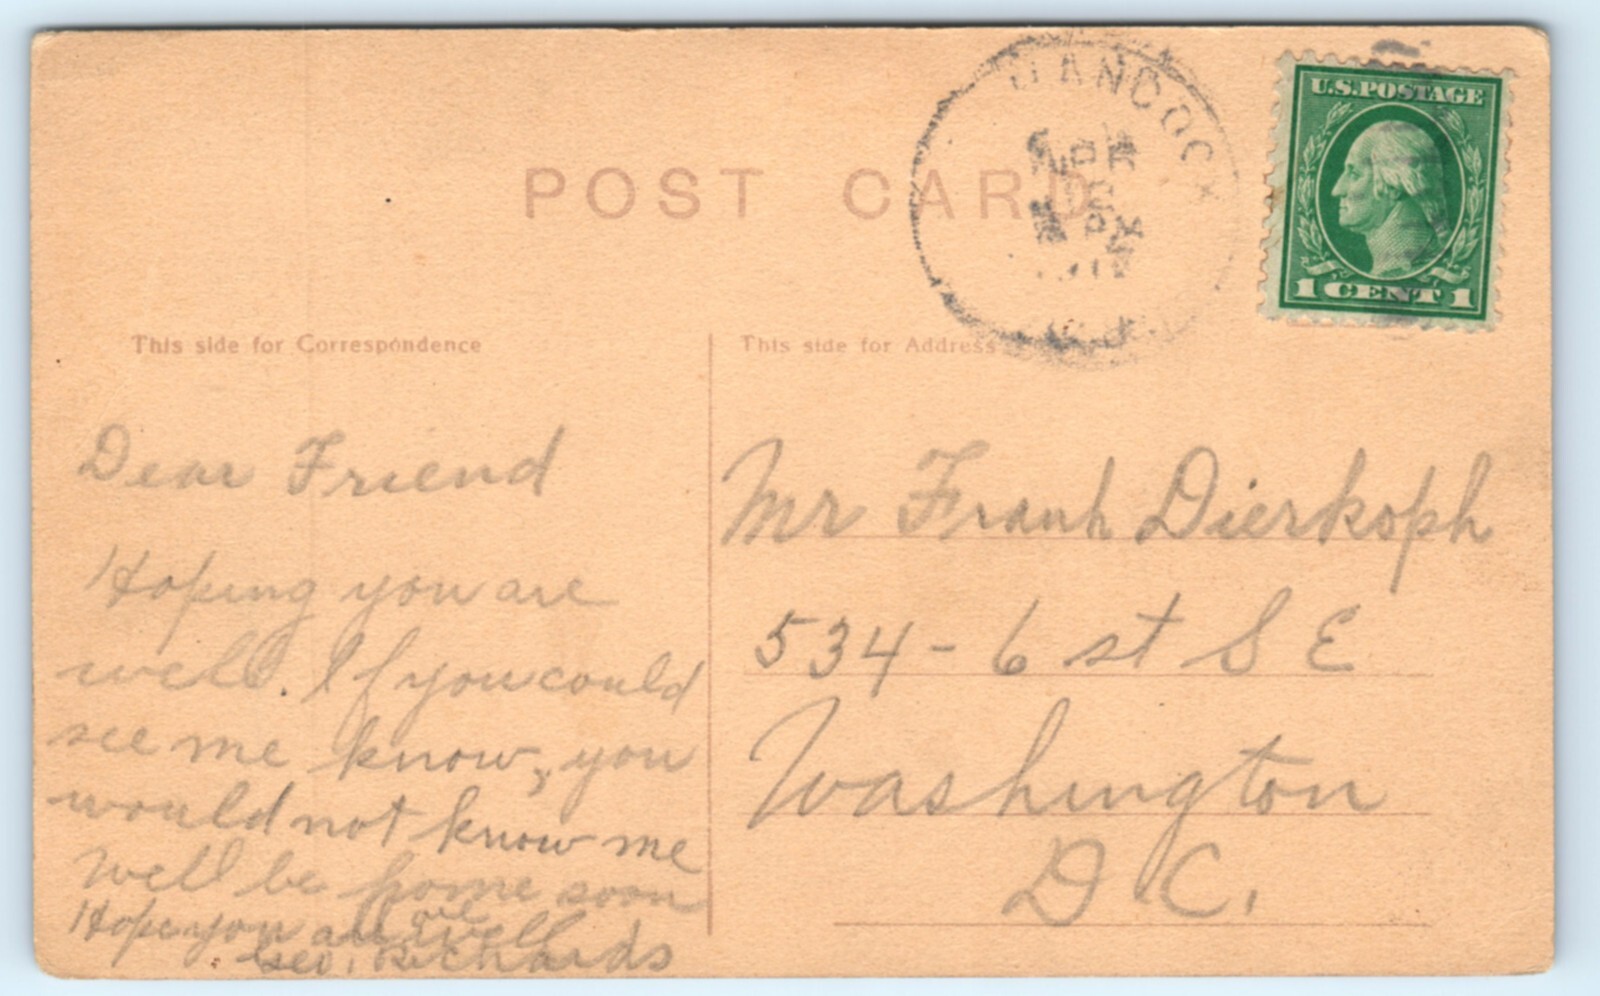 HANCOCK
U.S. POSTAGE
1 CENT 1
POST CARD
This side for Correspondence
This side for Address
Dear Friend
Hoping you are
well. If you could
see me know, you
would not know me
well be home soon
Hope you are all well
Geo. Richards
Mr Frank Dierkoph
534 - 6 st S E
Washington
D C.